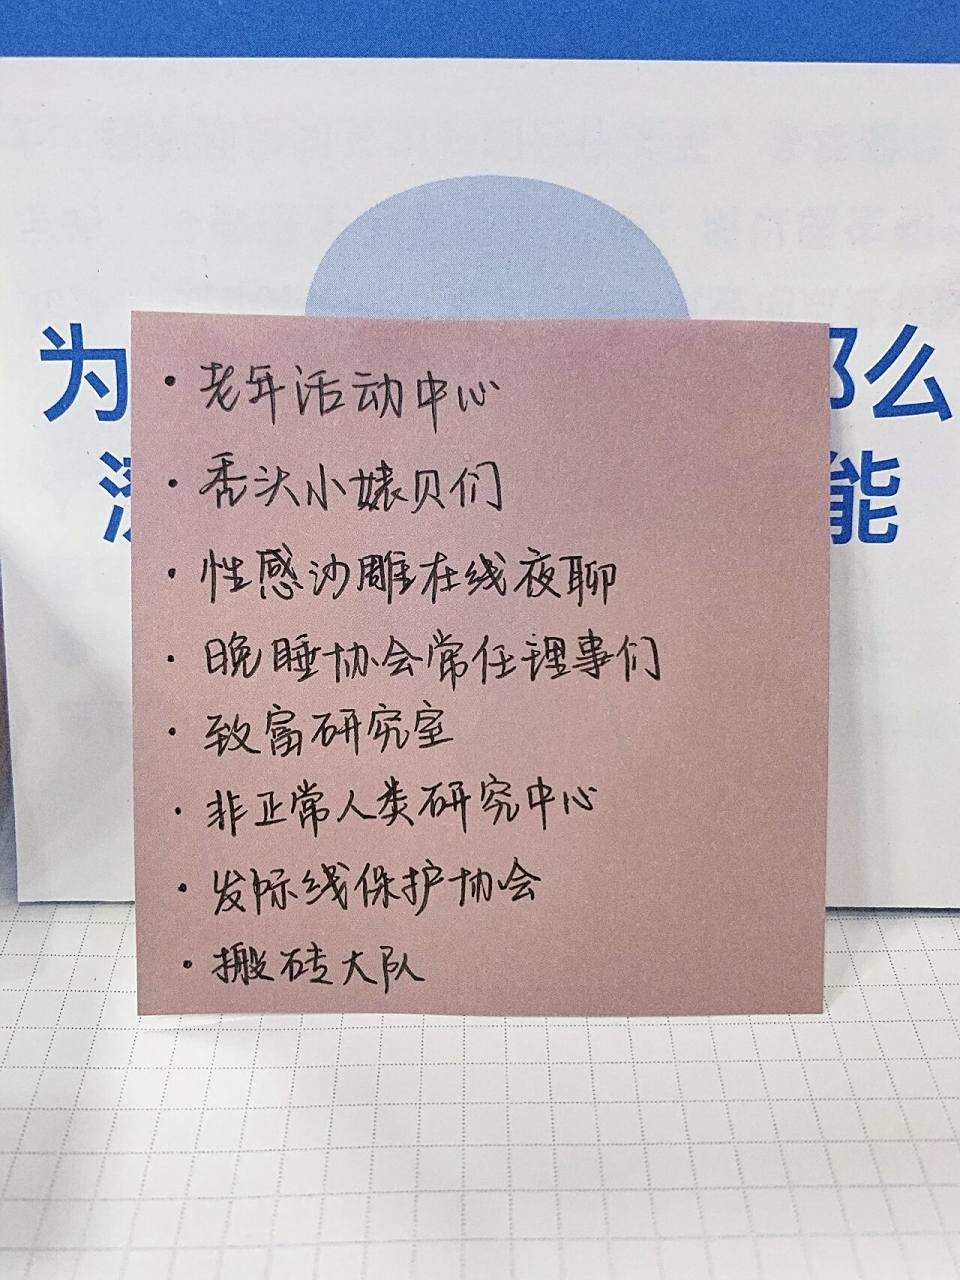 为 那么
能
• 老年活动中心
• 秃头小婊贝们
• 性感沙雕在线夜聊
• 晚睡协会常任理事们
• 致富研究室
• 非正常人类研究中心
• 发际线保护协会
• 搬砖大队